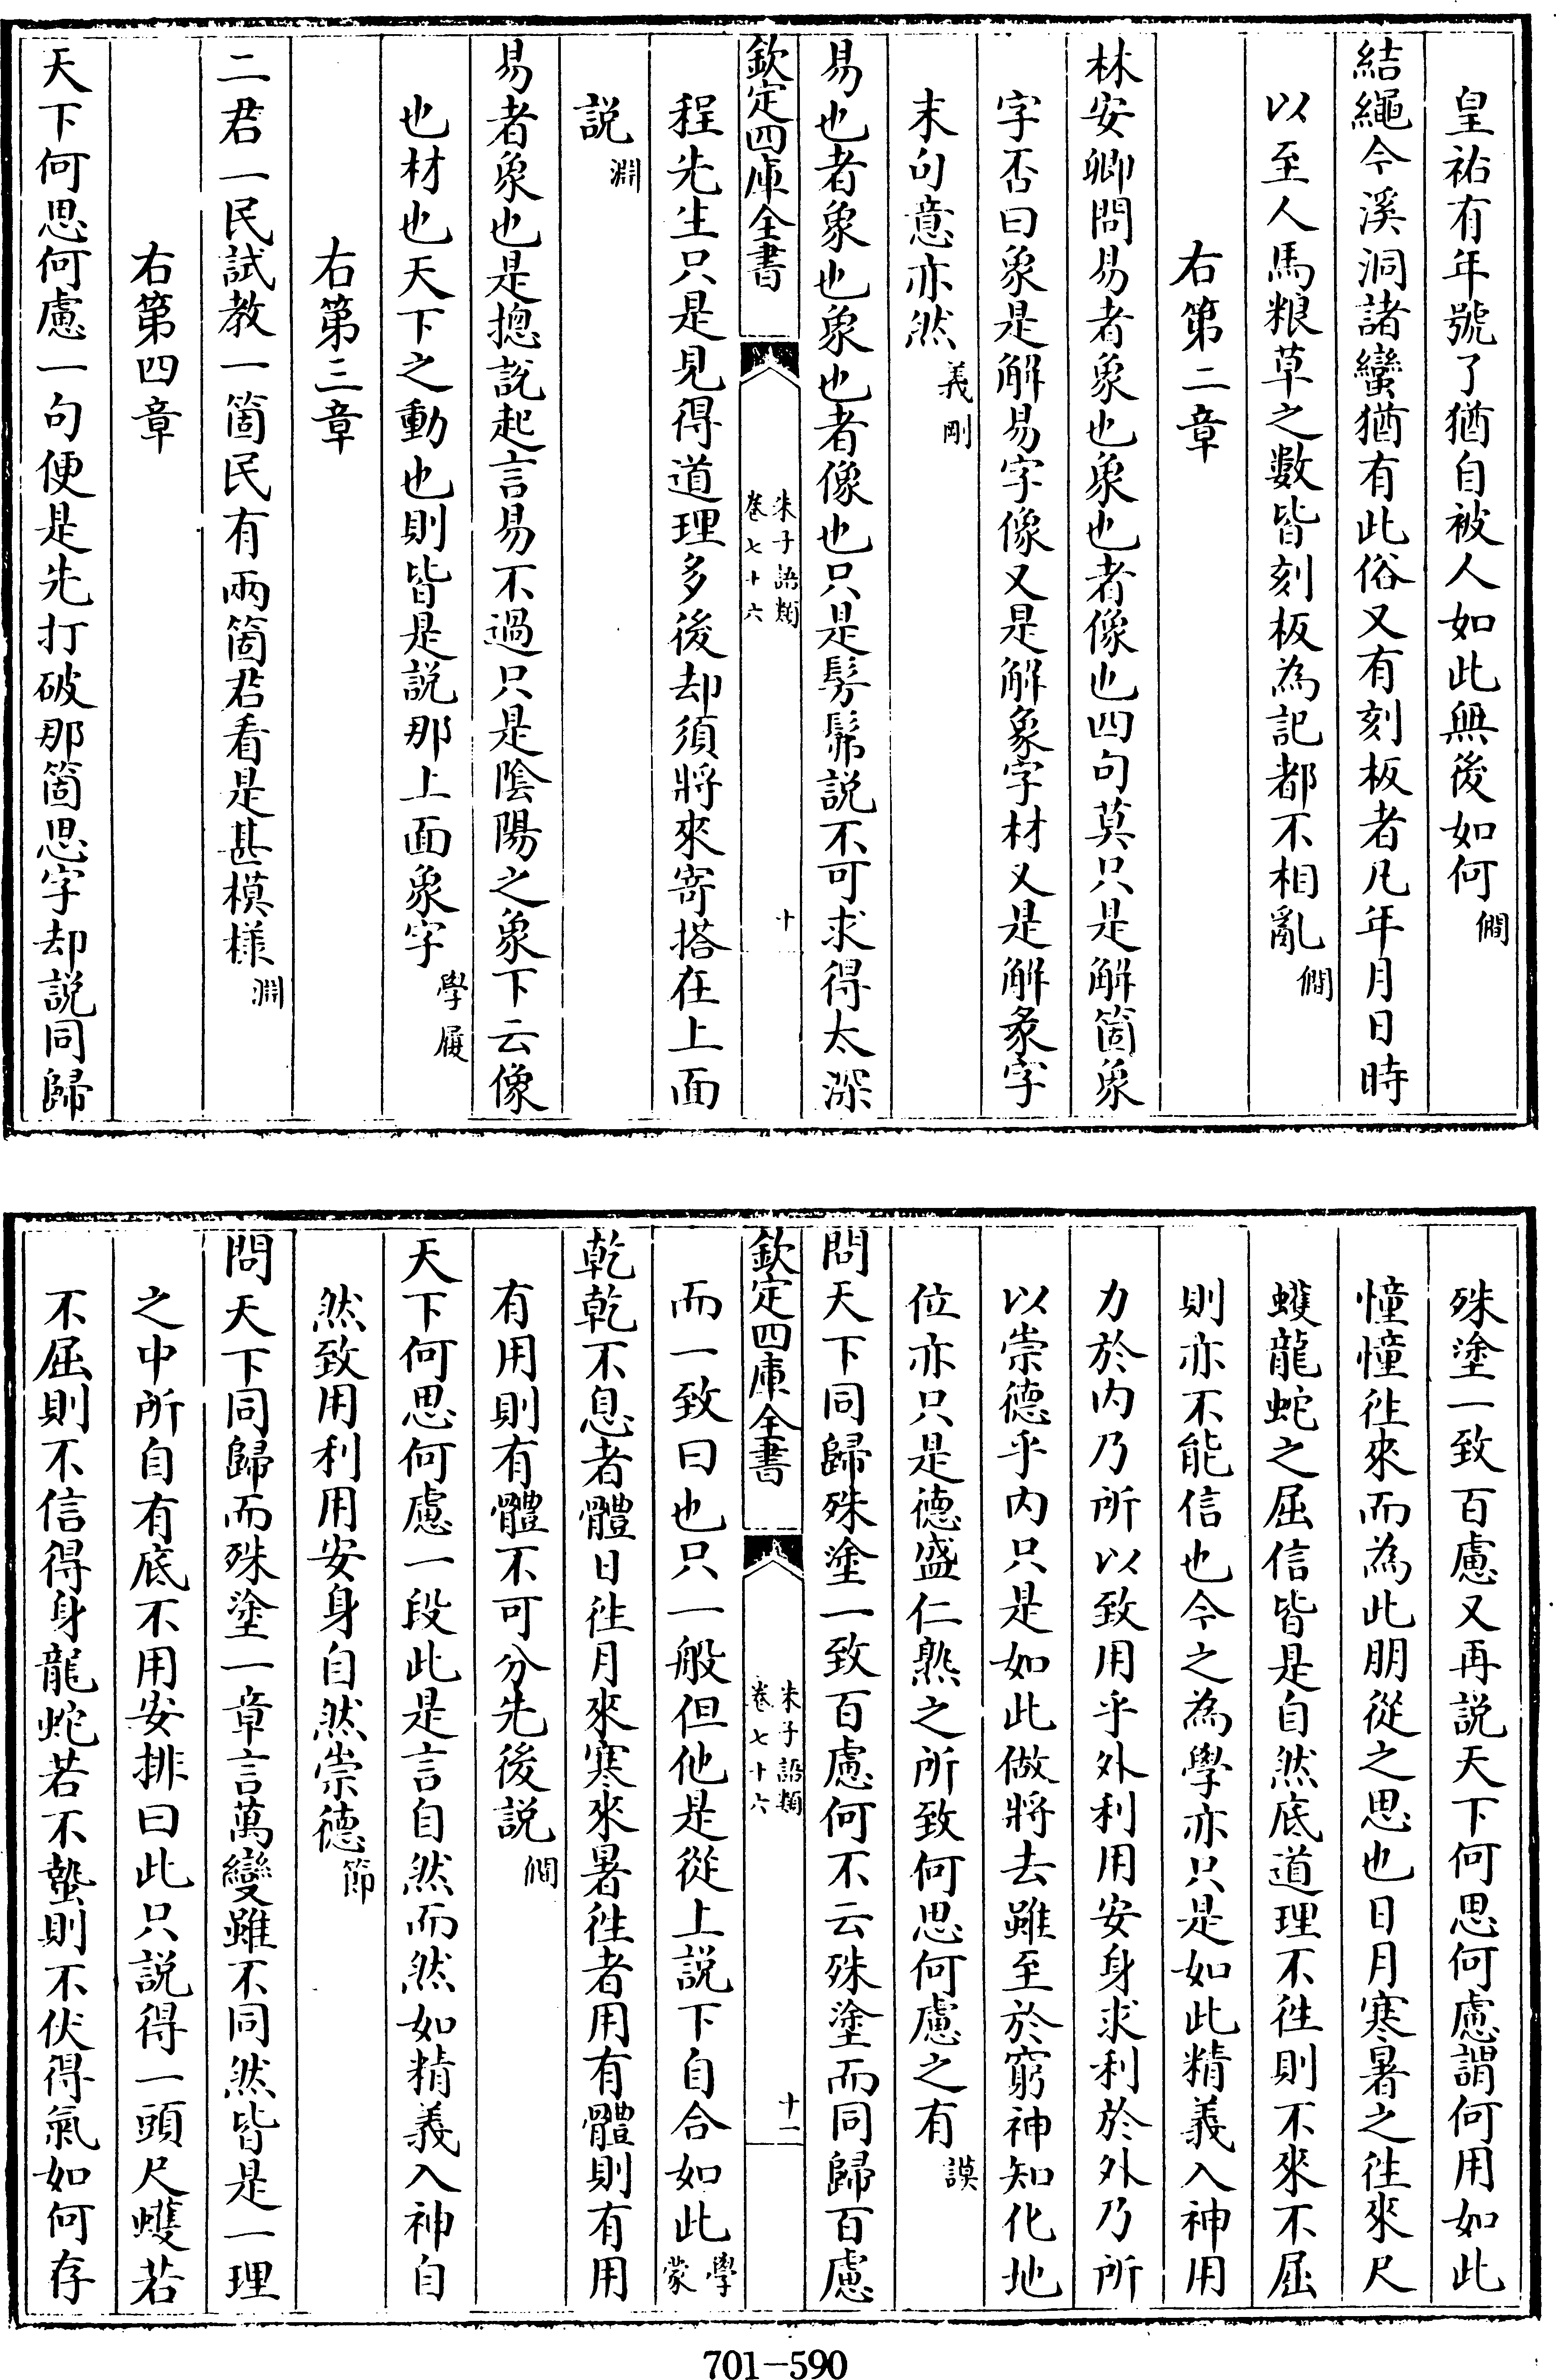 皇祐有年號了猶自被人如此無後如何僩
結繩今溪洞諸蠻猶有此俗又有刻板者凡年月日時
以至人馬粮草之數皆刻板為記都不相亂僩
右第二章
林安卿問易者象也象也者像也四句莫只是解箇象
字否曰象是解易字像又是解象字材又是解彖字
末句意亦然義剛
易也者象也象也者像也只是髣髴説不可求得太深
欽定四庫全書
朱子語類
卷七十六
十
程先生只是見得道理多後却須將來寄搭在上面
説淵
易者象也是摠説起言易不過只是陰陽之象下云像
也材也天下之動也則皆是説那上面象字學履
右第三章
二君一民試教一箇民有兩箇君看是甚模樣淵
右第四章
天下何思何慮一句便是先打破那箇思字却説同歸
殊塗一致百慮又再説天下何思何慮謂何用如此
憧憧往來而為此朋從之思也日月寒暑之往來尺
蠖龍蛇之屈信皆是自然底道理不往則不來不屈
則亦不能信也今之為學亦只是如此精義入神用
力於内乃所以致用乎外利用安身求利於外乃所
以崇德乎内只是如此做將去雖至於窮神知化地
位亦只是德盛仁熟之所致何思何慮之有謨
問天下同歸殊塗一致百慮何不云殊塗而同歸百慮
欽定四庫全書
朱子語類
卷七十六
十一
而一致曰也只一般但他是從上説下自合如此學蒙
乾乾不息者體日往月來寒來暑往者用有體則有用
有用則有體不可分先後説僩
天下何思何慮一段此是言自然而然如精義入神自
然致用利用安身自然崇德節
問天下同歸而殊塗一章言萬變雖不同然皆是一理
之中所自有底不用安排曰此只説得一頭尺蠖若
不屈則不信得身龍蛇若不蟄則不伏得氣如何存
701-590